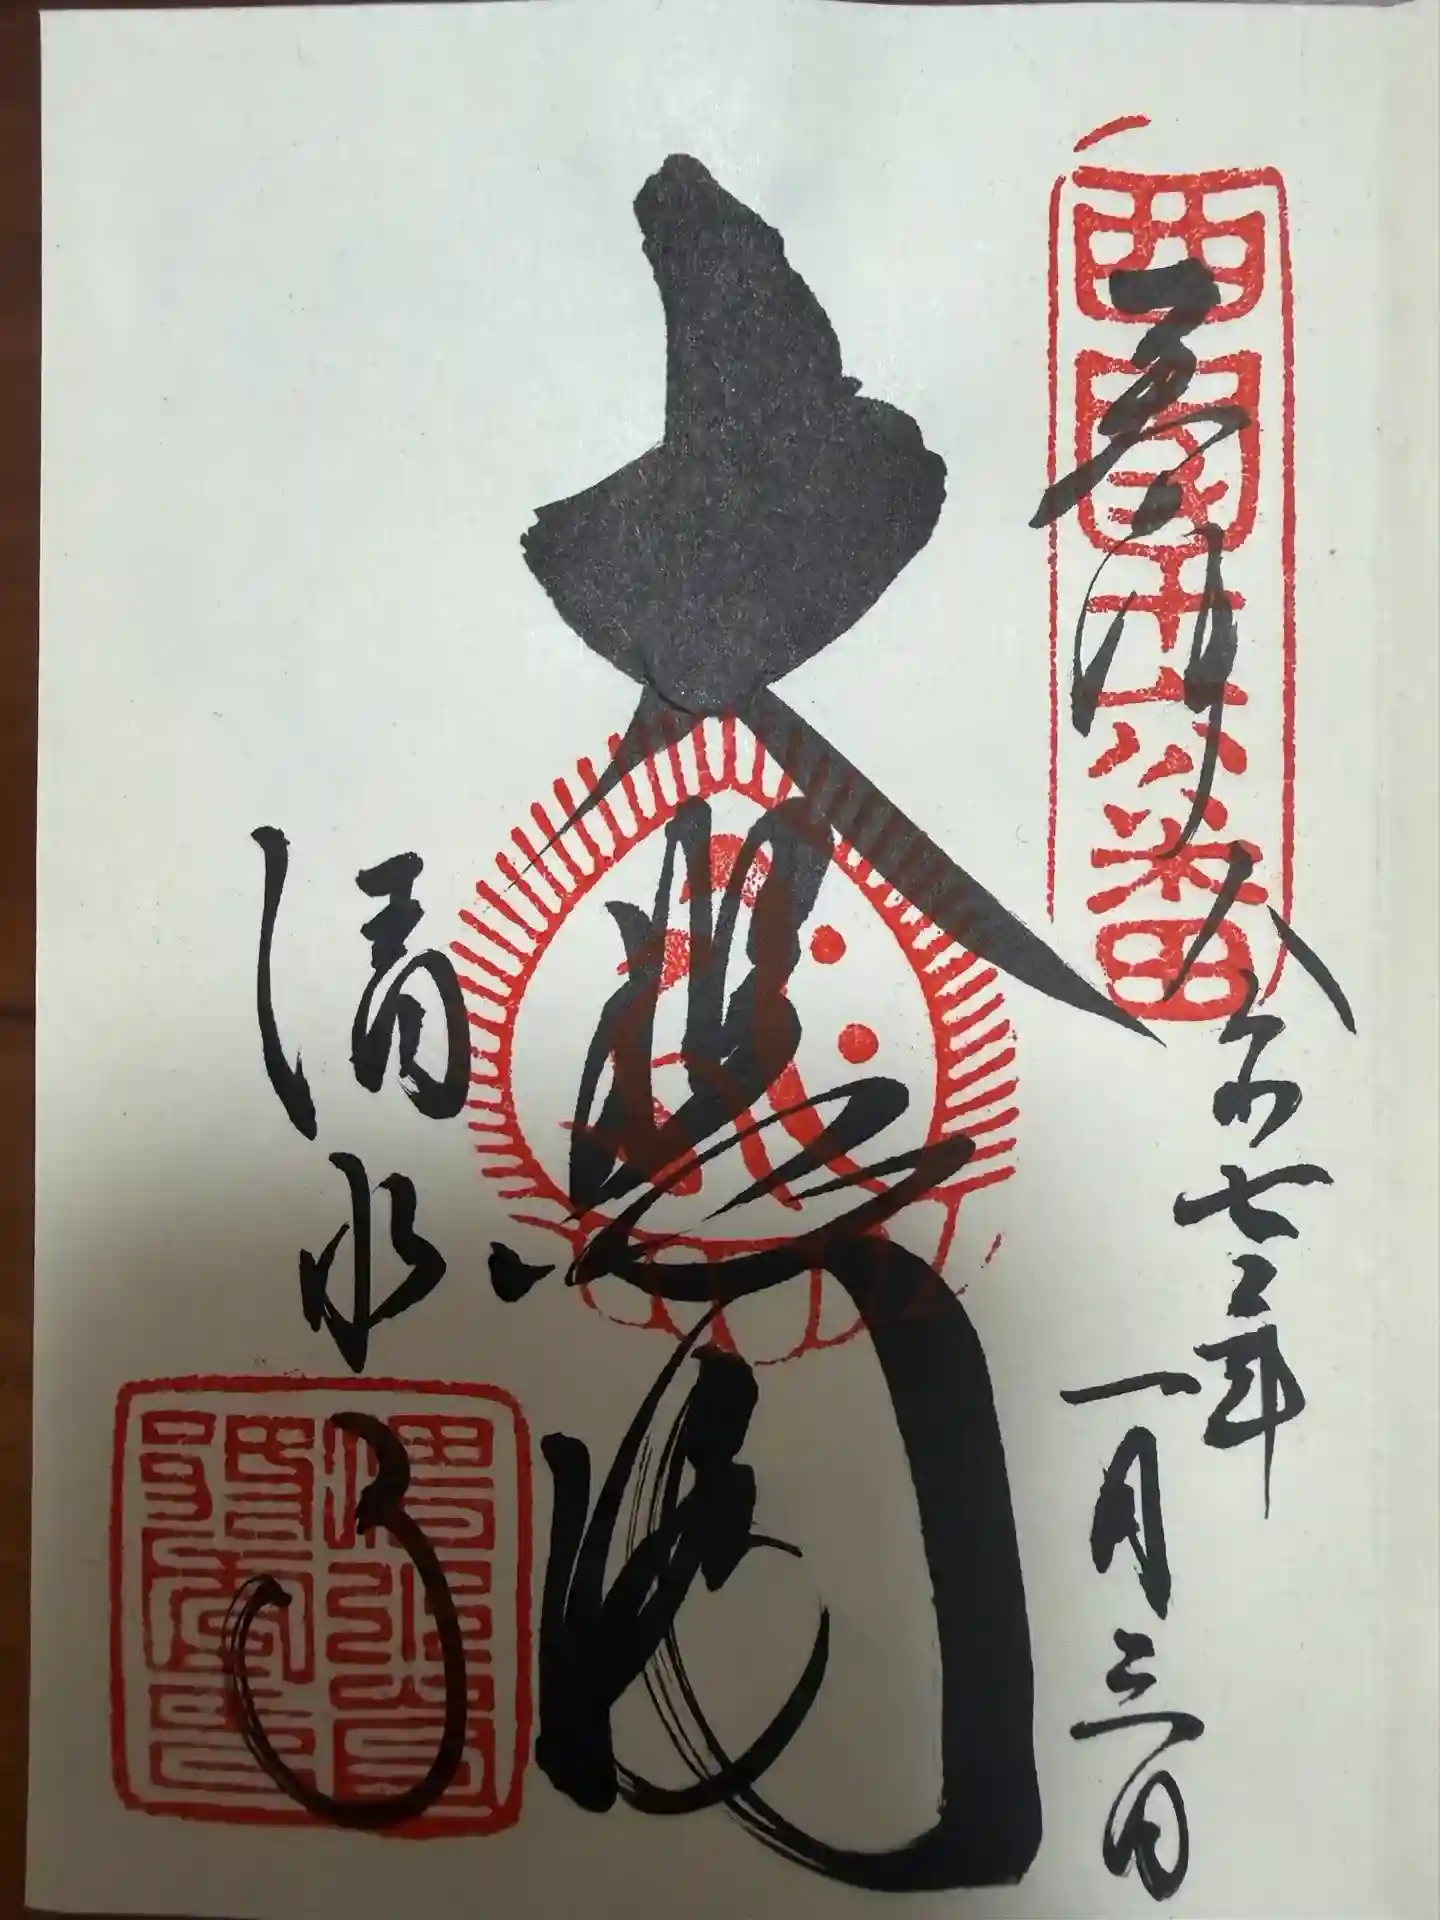 西國十六番
奉拝
令和七年
一月三日
大悲閣
清水寺